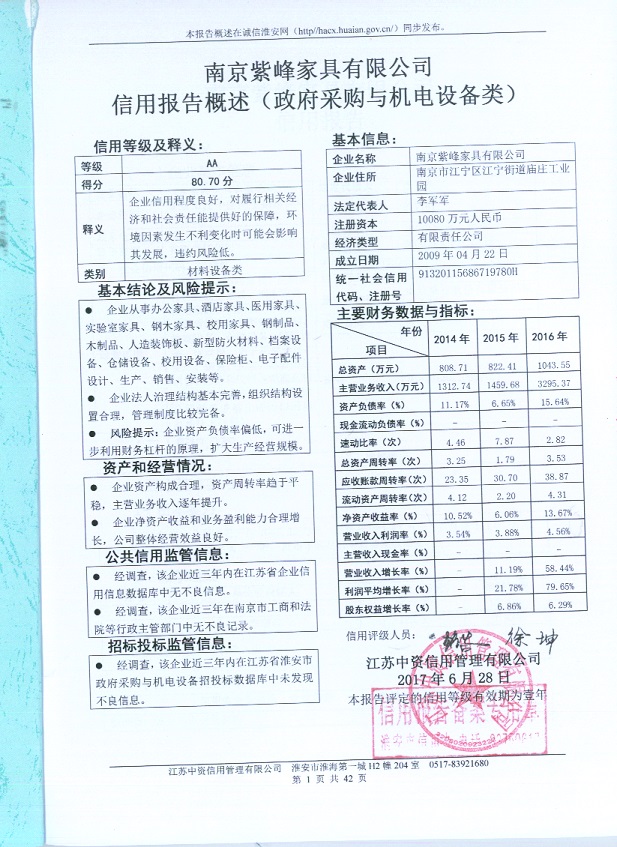 本报告概述在诚信淮安网（http//hacx.huaian.gov.cn/）同步发布。
南京紫峰家具有限公司
信用报告概述（政府采购与机电设备类）
信用等级及释义：
等级 AA
得分 80.70 分
释义 企业信用程度良好，对履行相关经
济和社会责任能提供好的保障，环
境因素发生不利变化时可能会影响
其发展，违约风险低。
类别 材料设备类
基本结论及风险提示：
● 企业从事办公家具、酒店家具、医用家具、
实验室家具、钢木家具、校用家具、钢制品、
木制品、人造装饰板、新型防火材料、档案设
备、仓储设备、校用设备、保险柜、电子配件
设计、生产、销售、安装等。
● 企业法人治理结构基本完善，组织结构设
置合理，管理制度比较完备。
● 风险提示：企业资产负债率偏低，可进一
步利用财务杠杆的原理，扩大生产经营规模。
资产和经营情况：
● 企业资产构成合理，资产周转率趋于平
稳，主营业务收入逐年提升。
● 企业净资产收益和业务盈利能力合理增
长，公司整体经营效益良好。
公共信用监管信息：
● 经调查，该企业近三年内在江苏省企业信
用信息数据库中无不良信息。
● 经调查，该企业近三年在南京市工商和法
院等行政主管部门中无不良记录。
招标投标监管信息：
● 经调查，该企业近三年内在江苏省淮安市
政府采购与机电设备招投标数据库中未发现
不良信息。
基本信息：
企业名称 南京紫峰家具有限公司
企业住所 南京市江宁区江宁街道庙庄工业
园
法定代表人 李军军
注册资本 10080 万元人民币
经济类型 有限责任公司
成立日期 2009 年 04 月 22 日
统一社会信用 91320115686719780H
代码、注册号
主要财务数据与指标：
年份
项目 2014 年 2015 年 2016 年
总资产（万元） 808.71 822.41 1043.55
主营业务收入(万元) 1312.74 1459.68 3295.37
资产负债率（%） 11.17% 6.65% 15.64%
现金流动负债率（%） - - -
速动比率（次） 4.46 7.87 2.82
总资产周转率（次） 3.25 1.79 3.53
应收账款周转率（次） 23.35 30.70 38.87
流动资产周转率（次） 4.12 2.20 4.31
净资产收益率（%） 10.52% 6.06% 13.67%
营业收入利润率（%） 3.54% 3.88% 4.56%
主营收入现金率（%） - - -
营业收入增长率（%） - 11.19% 58.44%
利润平均增长率（%） - 21.78% 79.65%
股东权益增长率（%） - 6.86% 6.29%
信用评级人员： 徐坤
江苏中资信用管理有限公司
2017 年 6 月 28 日
本报告评定的信用等级有效期为壹年
江苏中资信用管理有限公司 淮安市淮海第一城 H2 幢 204 室 0517-83921680
第 1 页 共 42 页